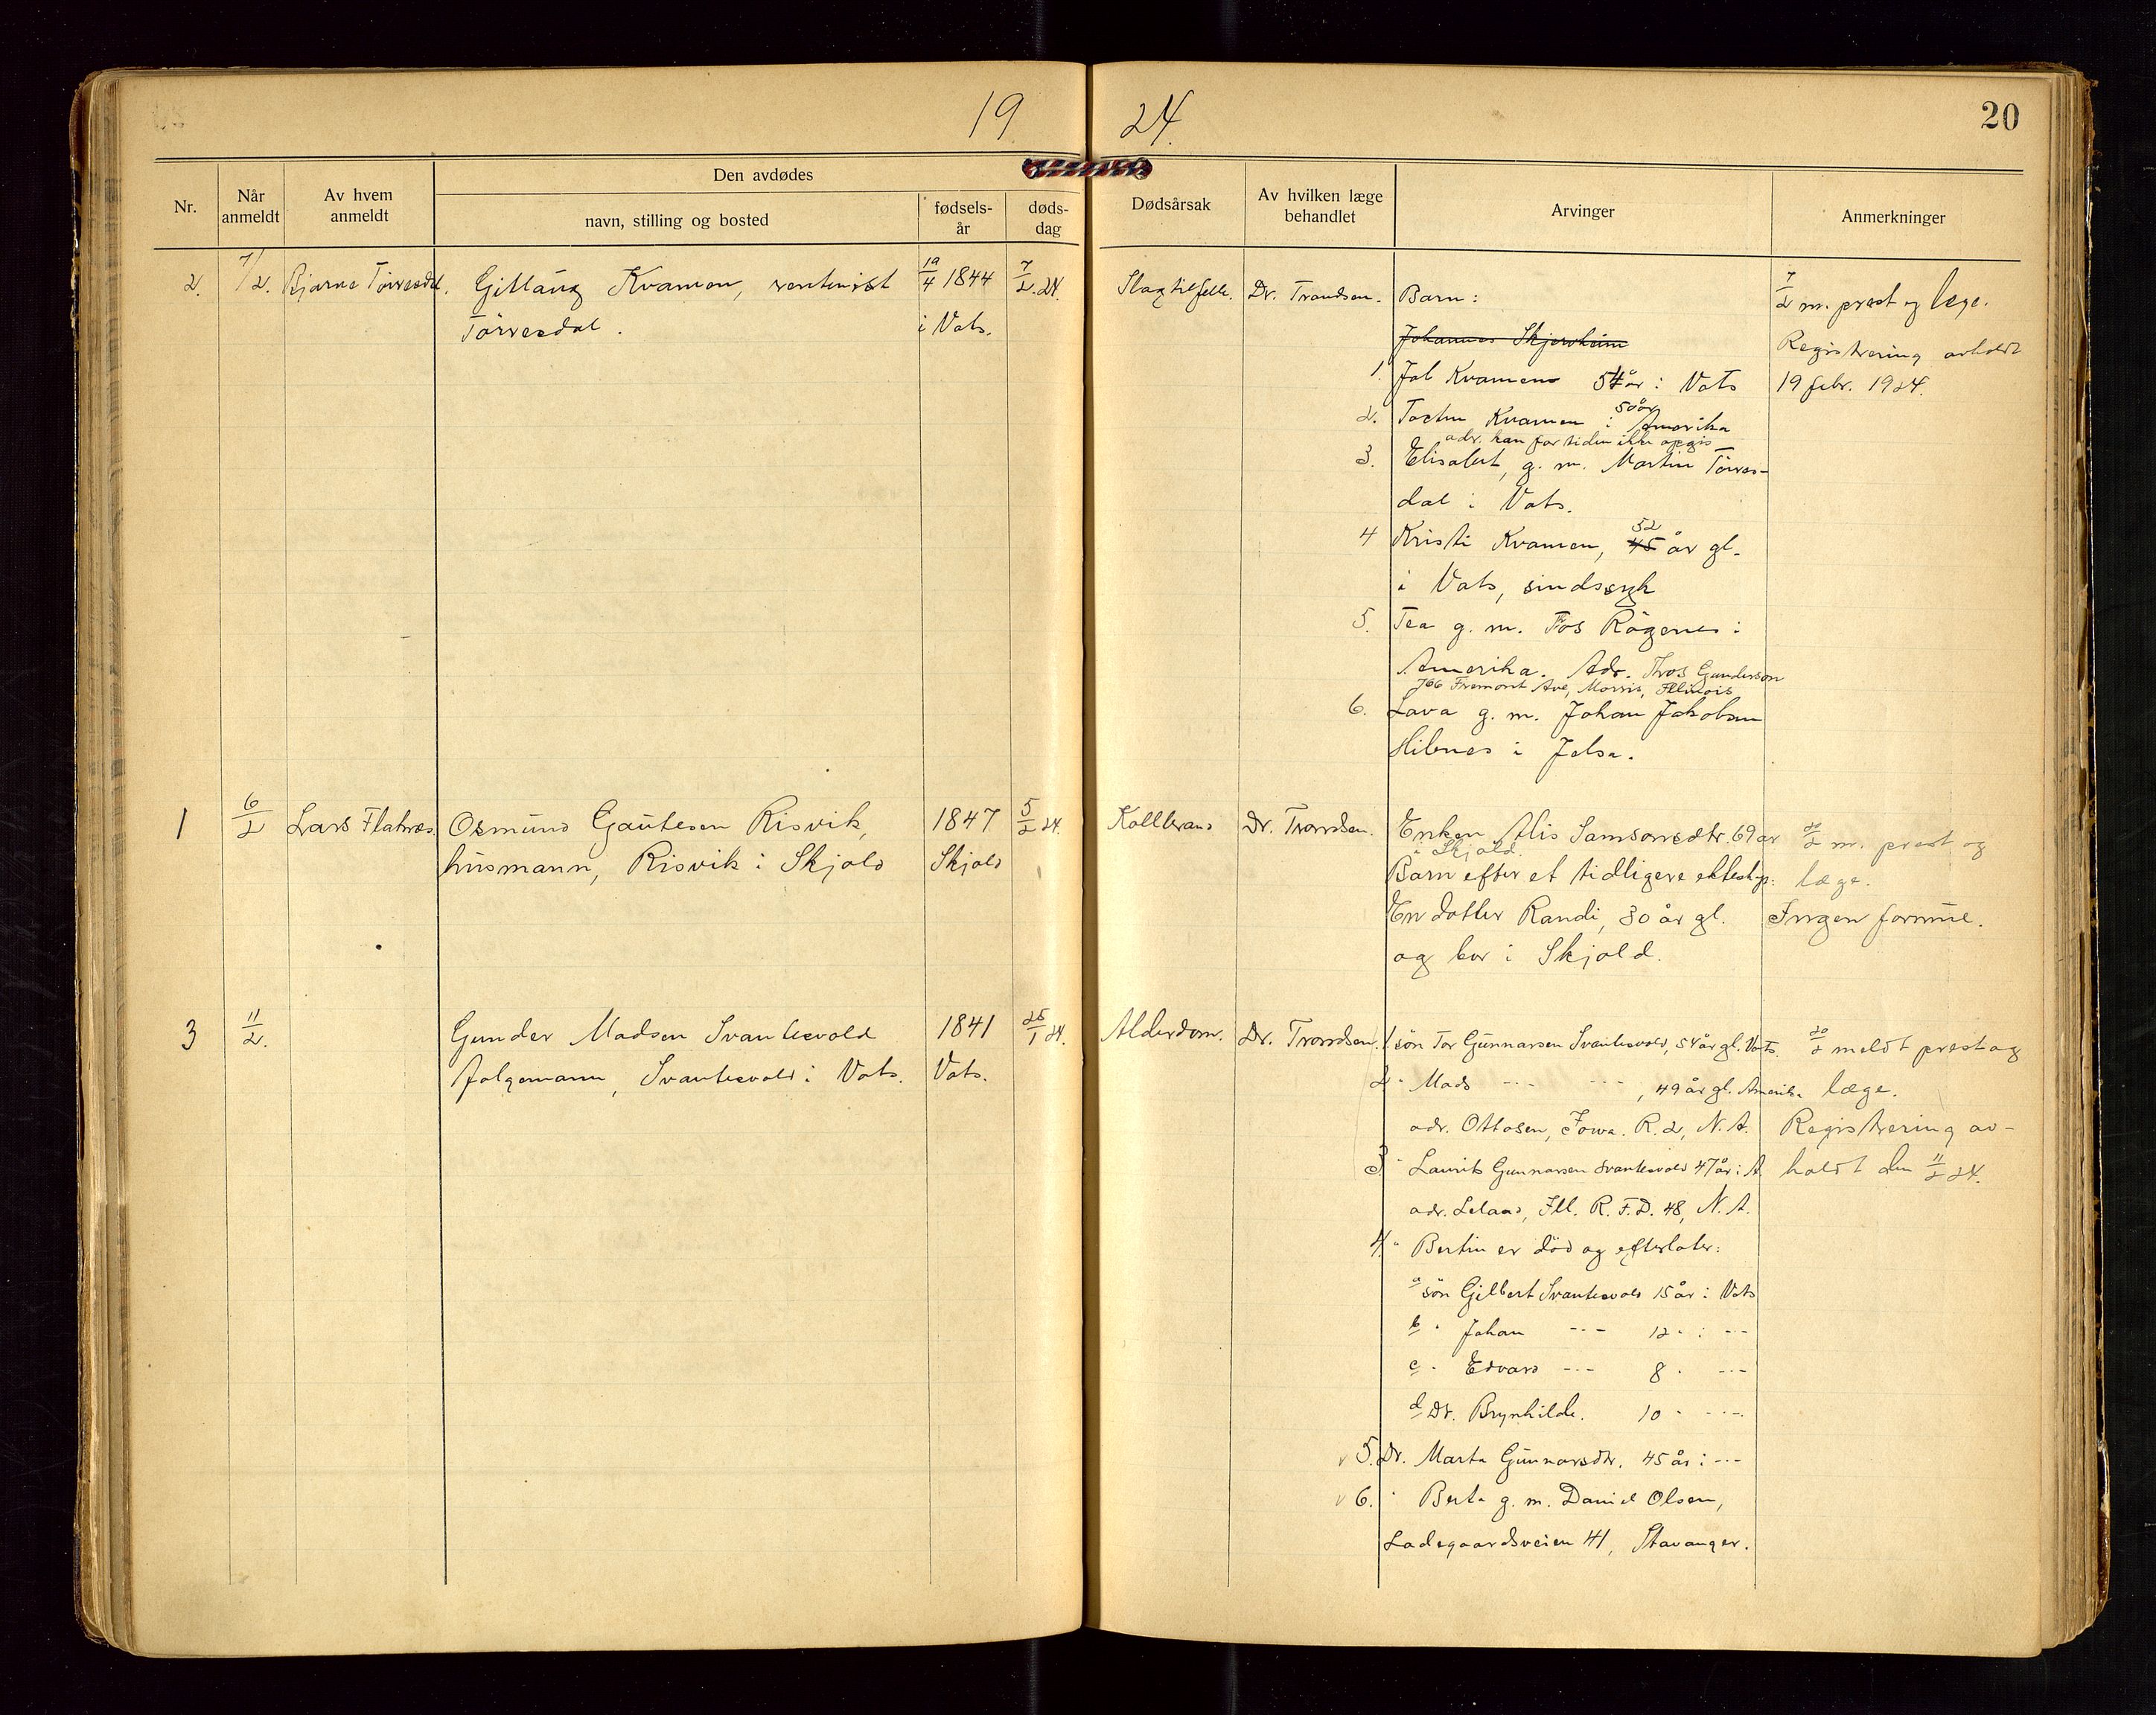 19 24.
20
Nr.
Når anmeldt
Av hvem anmeldt
Den avdødes
navn, stilling og bosted
fødsels- år
døds- dag
Dødsårsak
Av hvilken læge behandlet
Arvinger
Anmerkninger
2. 7/2. Bjarne Törvesdal. Gitlaug Kvamen, rentenist 19/4 1844 7/2. 24. Slagtilfelle. Dr. Trondsen. Barn: 7/2 m. prest og læge.
Törvesdal. i Vats.
Johannes Skjersheim
Registrering avholdt
1. Jol Kvamen 54 år i Vats 19 febr. 1924.
2. Tosten Kvamen 50 år i Amerika
adr. kan for tiden ikke opgis
3. Elisabet, g. m. Martin Törves-
dal i Vats.
52
4 Kristi Kvamen, 45 år gl.
i Vats, sindssyk
5. Tea g. m. Tos Rögenes i
Amerika. Adr. Thos Gunderson
766 Fremont Ave, Morris, Illinois
6. Lava g. m. Johan Jakobsen
Hibnes i Jelsa.
1 6/2 Lars Flatnes. Osmund Gautesen Risvik, 1847 5/2 24. Koldbrand Dr. Trondsen. Enken Alis Samsonsdtr. 69 år 20/2 m. prest og
i Skjold.
husmann, Risvik i Skjold Skjold Barn efter et tidligere ekteskap: læge.
En datter Randi, 30 år gl. Ingen formue.
og bor i Skjold.
3 11/2. Gunder Madsen Svantesvold 1841 25/1 24. Alderdom. Dr. Trondsen. 1. sön Tor Gunnarsen Svantesvold, 54 år gl. Vats. 20/2 meldt prest og
folgemann, Svantesvold i Vats. Vats. 2 " Mads --- ---, 49 år gl. Amerika læge.
adr. Ottosen, Iowa. R. 2, N. A. Registrering av-
3 " Laurits Gunnarsen Svantesvold 47 år i A. holdt den 11/2 24.
adr. Leland, Ill. R. F. D. 48, N. A.
4. " Bertin er död og efterlater:
a sön Gilbert Svantesvold 15 år i Vats
b " Johan --- 12 " i ---
c " Edvard --- 8 " ---
d Dt. Brynhilde. 10 " ---
5. Dt. Marta Gunnarsdtr. 45 år i ---
6. " Berta g. m. Daniel Olsen,
Ladegaardsveien 41, Stavanger.